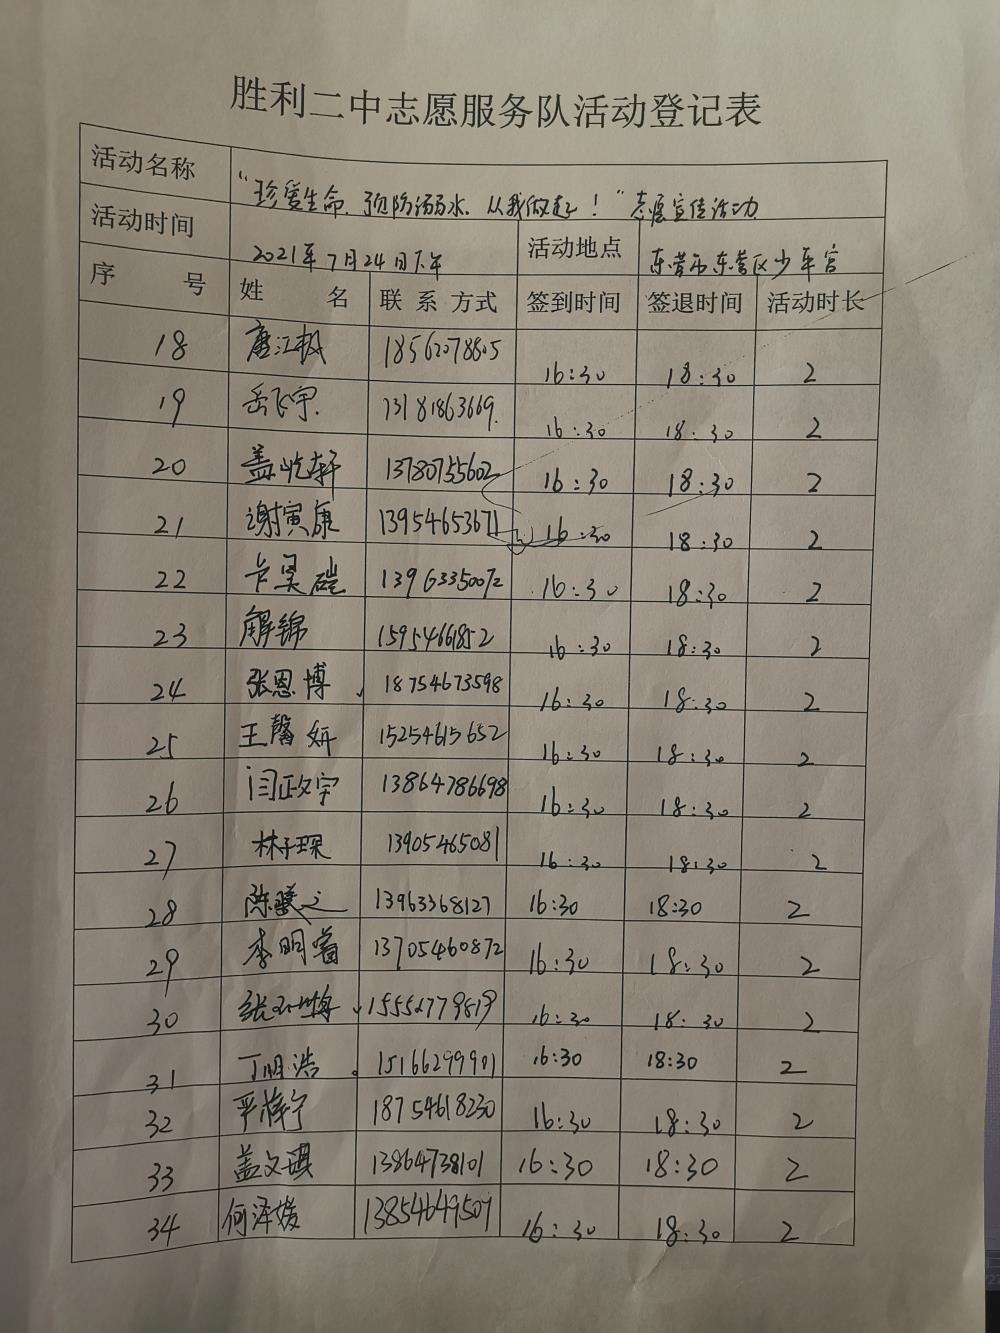 胜利二中志愿服务队活动登记表
活动名称 “珍爱生命、预防溺水、从我做起!”志愿宣传活动
活动时间 2021年7月24日下午 活动地点 东营市东营区少年宫
序 号 姓 名 联系方式 签到时间 签退时间 活动时长
18 唐江 18562078805 16:30 18:30 2
19 岳飞宇 13181863669 16:30 18:30 2
20 盖屹轩 13780755602 16:30 18:30 2
21 谢寅康 13954653671 16:30 18:30 2
22 昊磑 13963350072 16:30 18:30 2
23 解锦 15954661852 16:30 18:30 2
24 张恩博 18754673598 16:30 18:30 2
25 王馨妍 15254615652 16:30 18:30 2
26 闫政宇 13864786698 16:30 18:30 2
27 林子琛 13905465081 16:30 18:30 2
28 陈之 13963368127 16:30 18:30 2
29 李明 13705460872 16:30 18:30 2
30 张 15552779819 16:30 18:30 2
31 丁明浩 15166299901 16:30 18:30 2
32 梓宁 18754618230 16:30 18:30 2
33 盖文琪 13864738101 16:30 18:30 2
34 何泽媛 13854649509 16:30 18:30 2